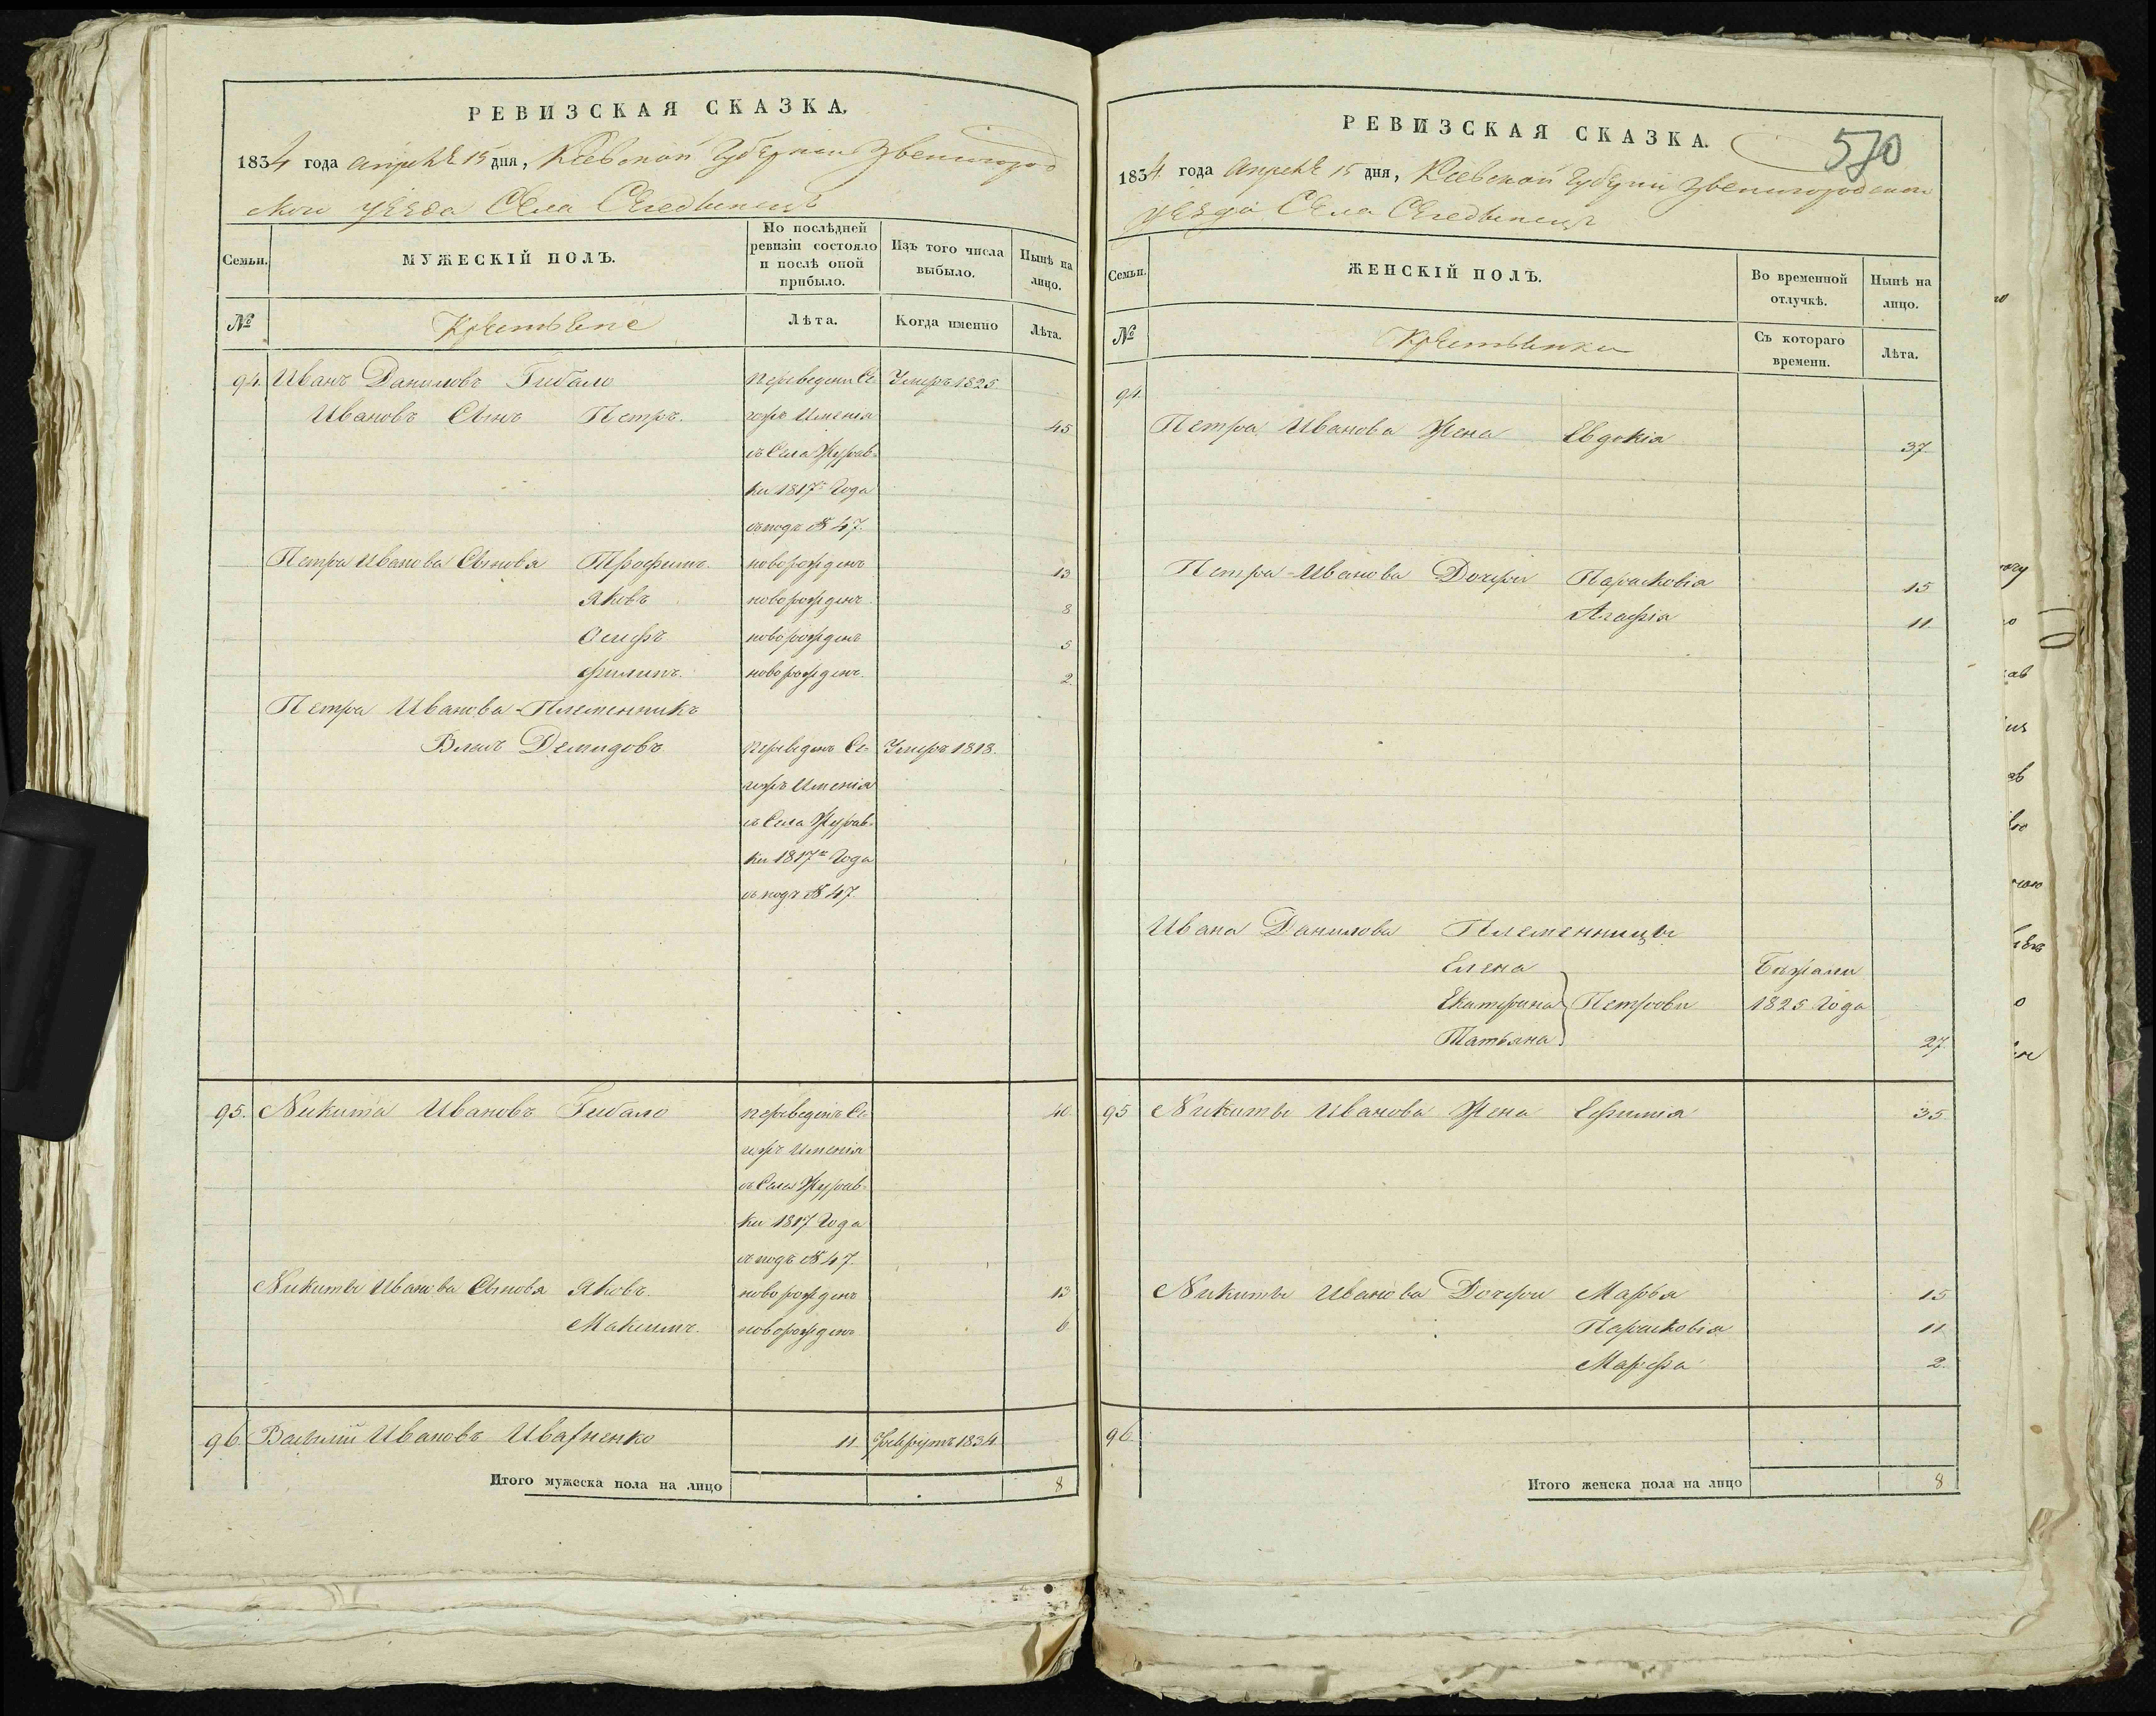 РЕВИЗСКАЯ СКАЗКА.
1834 года Апреля 15 дня, Кіевской Губерніи Звенигород
ской уезда Села
Семьи.
МУЖЕСКІЙ ПОЛЪ.
По послѣдней ревизіи состояло и послѣ оной прибыло.
Изъ того числа выбыло.
Нынѣ на лицо.
№
Крестьяне
Лѣта.
Когда именно
Лѣта.
94. Иванъ Даниловъ Гибало переведени Се- Умеръ 1825
Ивановъ Сынъ Петръ. гожъ Именія 45
съ Села Журав-
ки 1817 Года
съ подъ № 47.
Петра Иванова Сыновя Трофимъ. новорожденъ 13
Яковъ новорожденъ 8
Осифъ новорожденъ 5
Филипъ. новорожденъ. 2.
Петра Иванова Племенникъ
Власъ Демидовъ переведенъ Се- Умеръ 1818.
гожъ Именія
съ Села Журав-
ки 1817 Года
съ подъ № 47.
95. Никита Ивановъ Гибало переведенъ Се- 40
гожъ Именія
съ Села Журав-
ки 1817 Года
съ подъ № 47.
Никиты Иванова Сыновя Яковъ. новорожденъ 13
Максимъ. новорожденъ 6
96. Василий Ивановъ Ивахненко 11 Рекрутъ 1834
Итого мужеска пола на лицо 8
РЕВИЗСКАЯ СКАЗКА.
570
1834 года Апреля 15 дня, Кіевской Губерніи Звенигородской
уезда Села
Семьи.
ЖЕНСКІЙ ПОЛЪ.
Во временной отлучкѣ.
Нынѣ на лицо.
№
Крестьянки
Съ котораго времени.
Лѣта.
94.
Петра Иванова Жена Евдокія 37
Петра Иванова Дочери Парасковія 15
Агафія 11
Ивана Данилова Племенницы
Елена Бѣжали
Екатерина Петровы 1825 Года
Татьяна 27
95 Никиты Иванова Жена Ефимія 35
Никиты Иванова Дочери Марья 15
Парасковія 11
Марфа 2.
96.
Итого женска пола на лицо 8